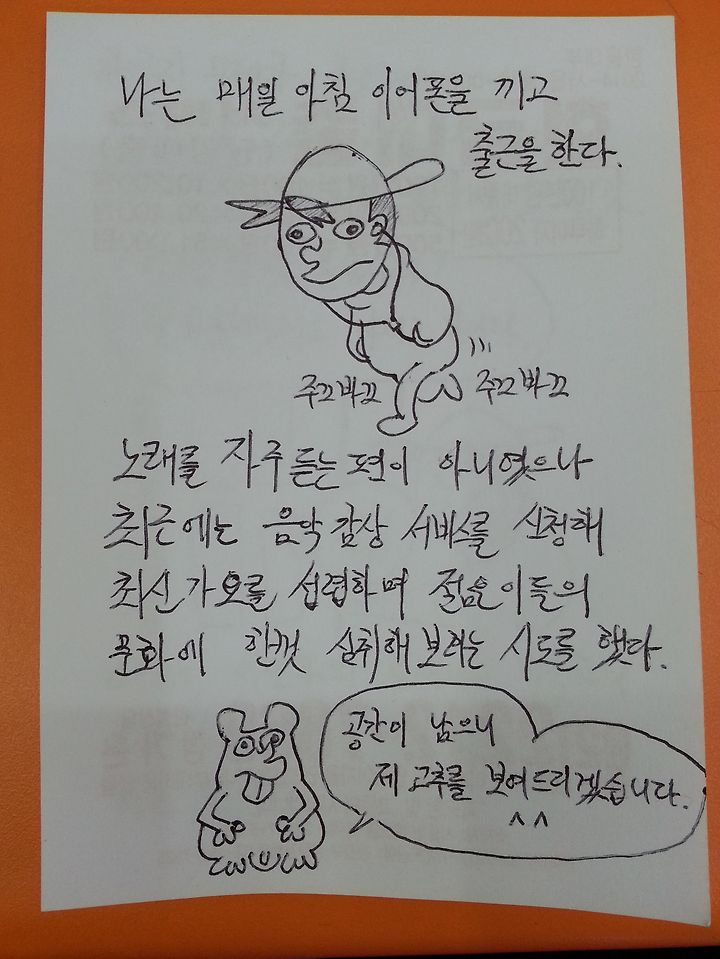 나는 매일 아침 이어폰을 끼고
출근을 한다.
주끄바끄 주끄바끄
노래를 자주 듣는 편이 아니였으나
최근에는 음악감상 서비스를 신청해
최신가요를 섭렵하며 젊은이들의
문화에 한껏 심취해보려는 시도를 했다.
공간이 남으니
제 고추를 보여드리겠습니다.
^ ^